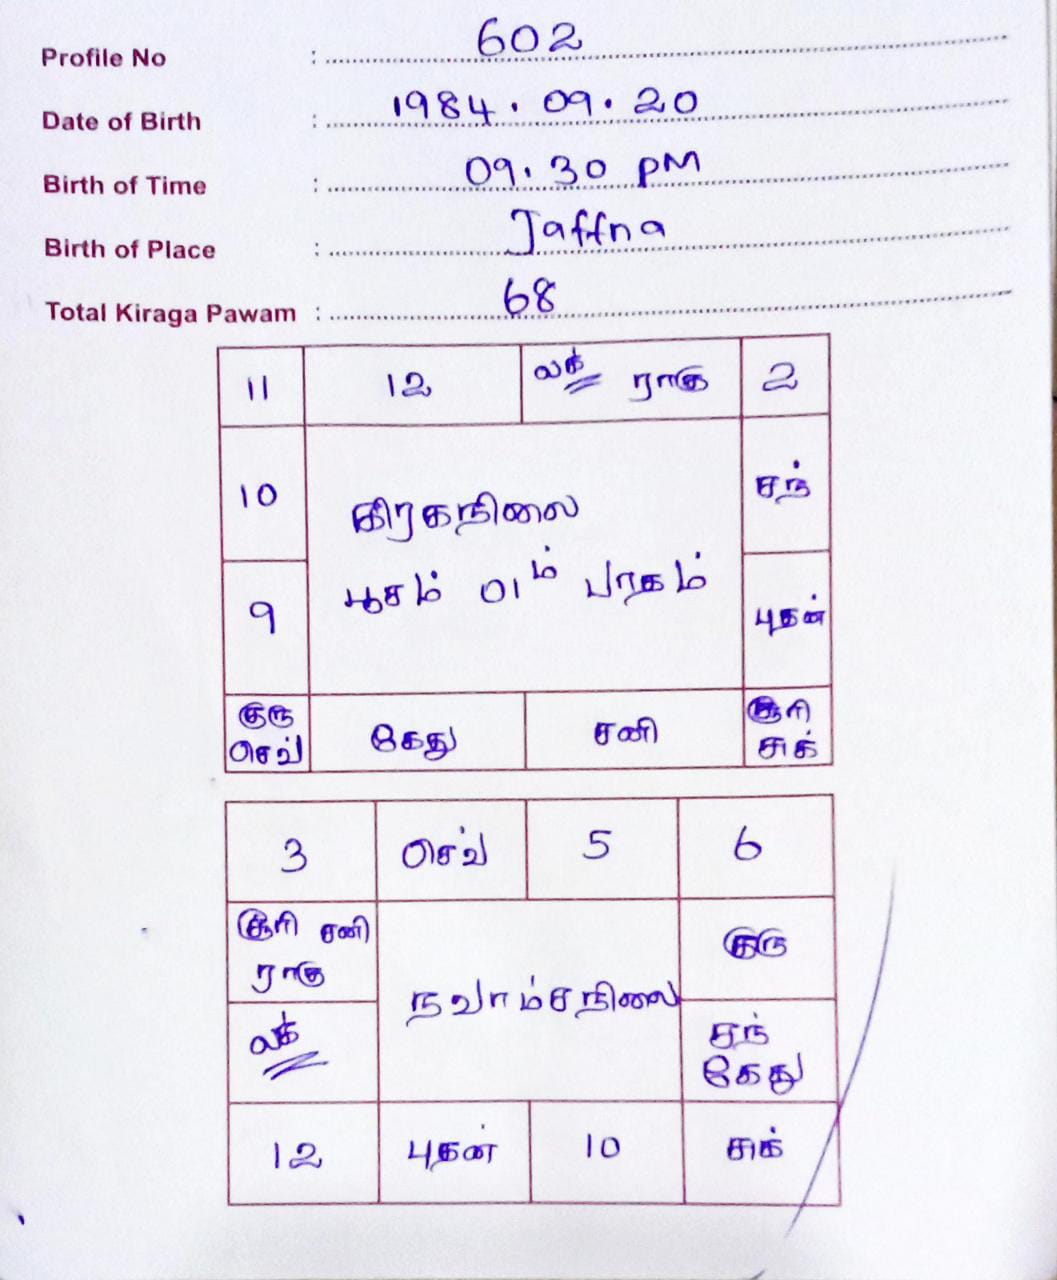 Profile No : 602
Date of Birth : 1984.09.20
Birth of Time : 09.30 PM
Birth of Place : Jaffna
Total Kiraga Pawam : 68
11 12 லக் ராகு 2
10 சந்
கிரகநிலை
பூசம் 01ம் பாகம்
9 புதன்
குரு செவ் கேது சனி சூரி சுக்
3 செவ் 5 6
சூரி சனி ராகு குரு
நவாம்சநிலை
லக் சந் கேது
12 புதன் 10 சுக்